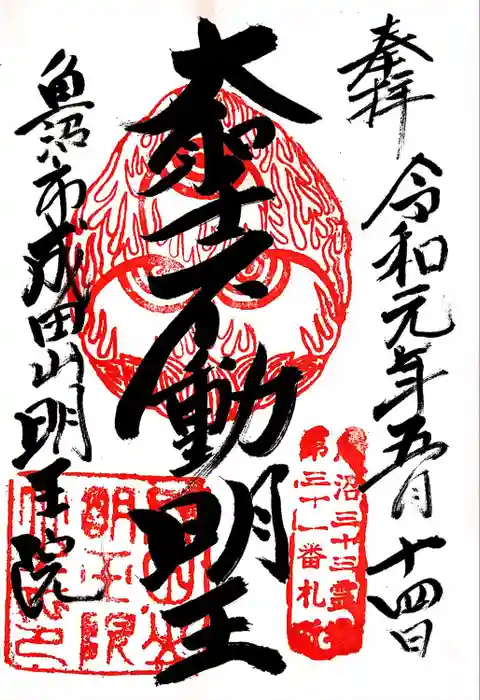 奉拝
令和元年五月十四日
大聖不動明王
沼三十三霊
第三十一番札
魚沼市成田山明王院
明王院